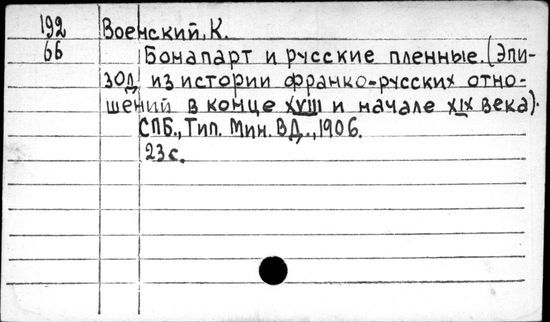 192 Военский, К.
66 Бонапарт и русские пленные. (Эпи-
зод из истории франко-русских отно-
шений в конце XVIII и начале XIX века).
СПБ., Тип. Мин. ВД., 1906.
23 с.